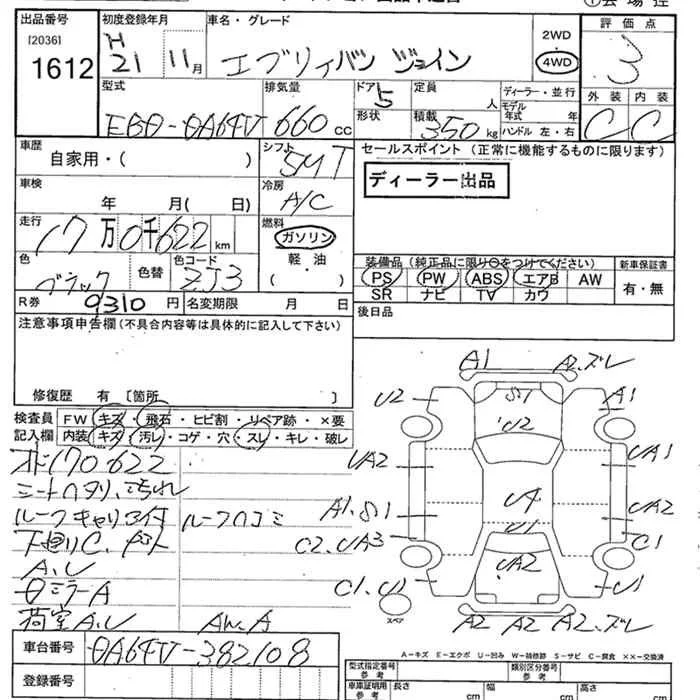 出品番号
[2036]
1612
初度登録年月
H
21
11月
車名・グレード
エブリィバン ジョイン
2WD
4WD
評価点
3
外装 内装
C C
型式
EBD-DA64V
排気量
660 cc
ドア
5
形状
定員
人
積載
350 kg
ディーラー・並行
モデル
年式 年
ハンドル 左・右
車歴
自家用・( )
シフト
5MT
セールスポイント(正常に機能するものに限ります)
ディーラー出品
車検
年 月( 日)
冷房
A/C
走行
17万0千622km
燃料
ガソリン
軽・油
( )
色
ブラック
色替
色コード
ZJ3
装備品(純正品に限り○をつけてください)
PS PW ABS エアB AW
SR ナビ TV カワ
新車保証書
有・無
R券
9310円
名変期限 月 日
後日品
注意事項申告欄(不具合内容等は具体的に記入して下さい)
修復歴 有〔箇所 〕
検査員
記入欄
FW キズ・飛石・ヒビ割・リペア跡・×要
内装 キズ・汚レ・コゲ・穴・スレ・キレ・破レ
170622
シートヘタリ、汚れ
ルーフキャリア付 ルーフハコミ
下廻りC
A.U
ミラーA
荷室A.U
A1
A2.ズレ
U2
S1
U2
A1
UA2
UA1
A1.S1
UA2
C2.UA3
U1
C1
UA2
C1.U1
U1
スペア
A2 A2 A2.ズレ
車台番号
DA64V-382108
登録番号
A-キズ E-エクボ U-凹み W-補修跡 S-サビ C-腐食 ××-交換済
型式指定番号
参考
類別区分番号
参考
車庫証明用
参考
長さ cm
幅 cm
高さ cm